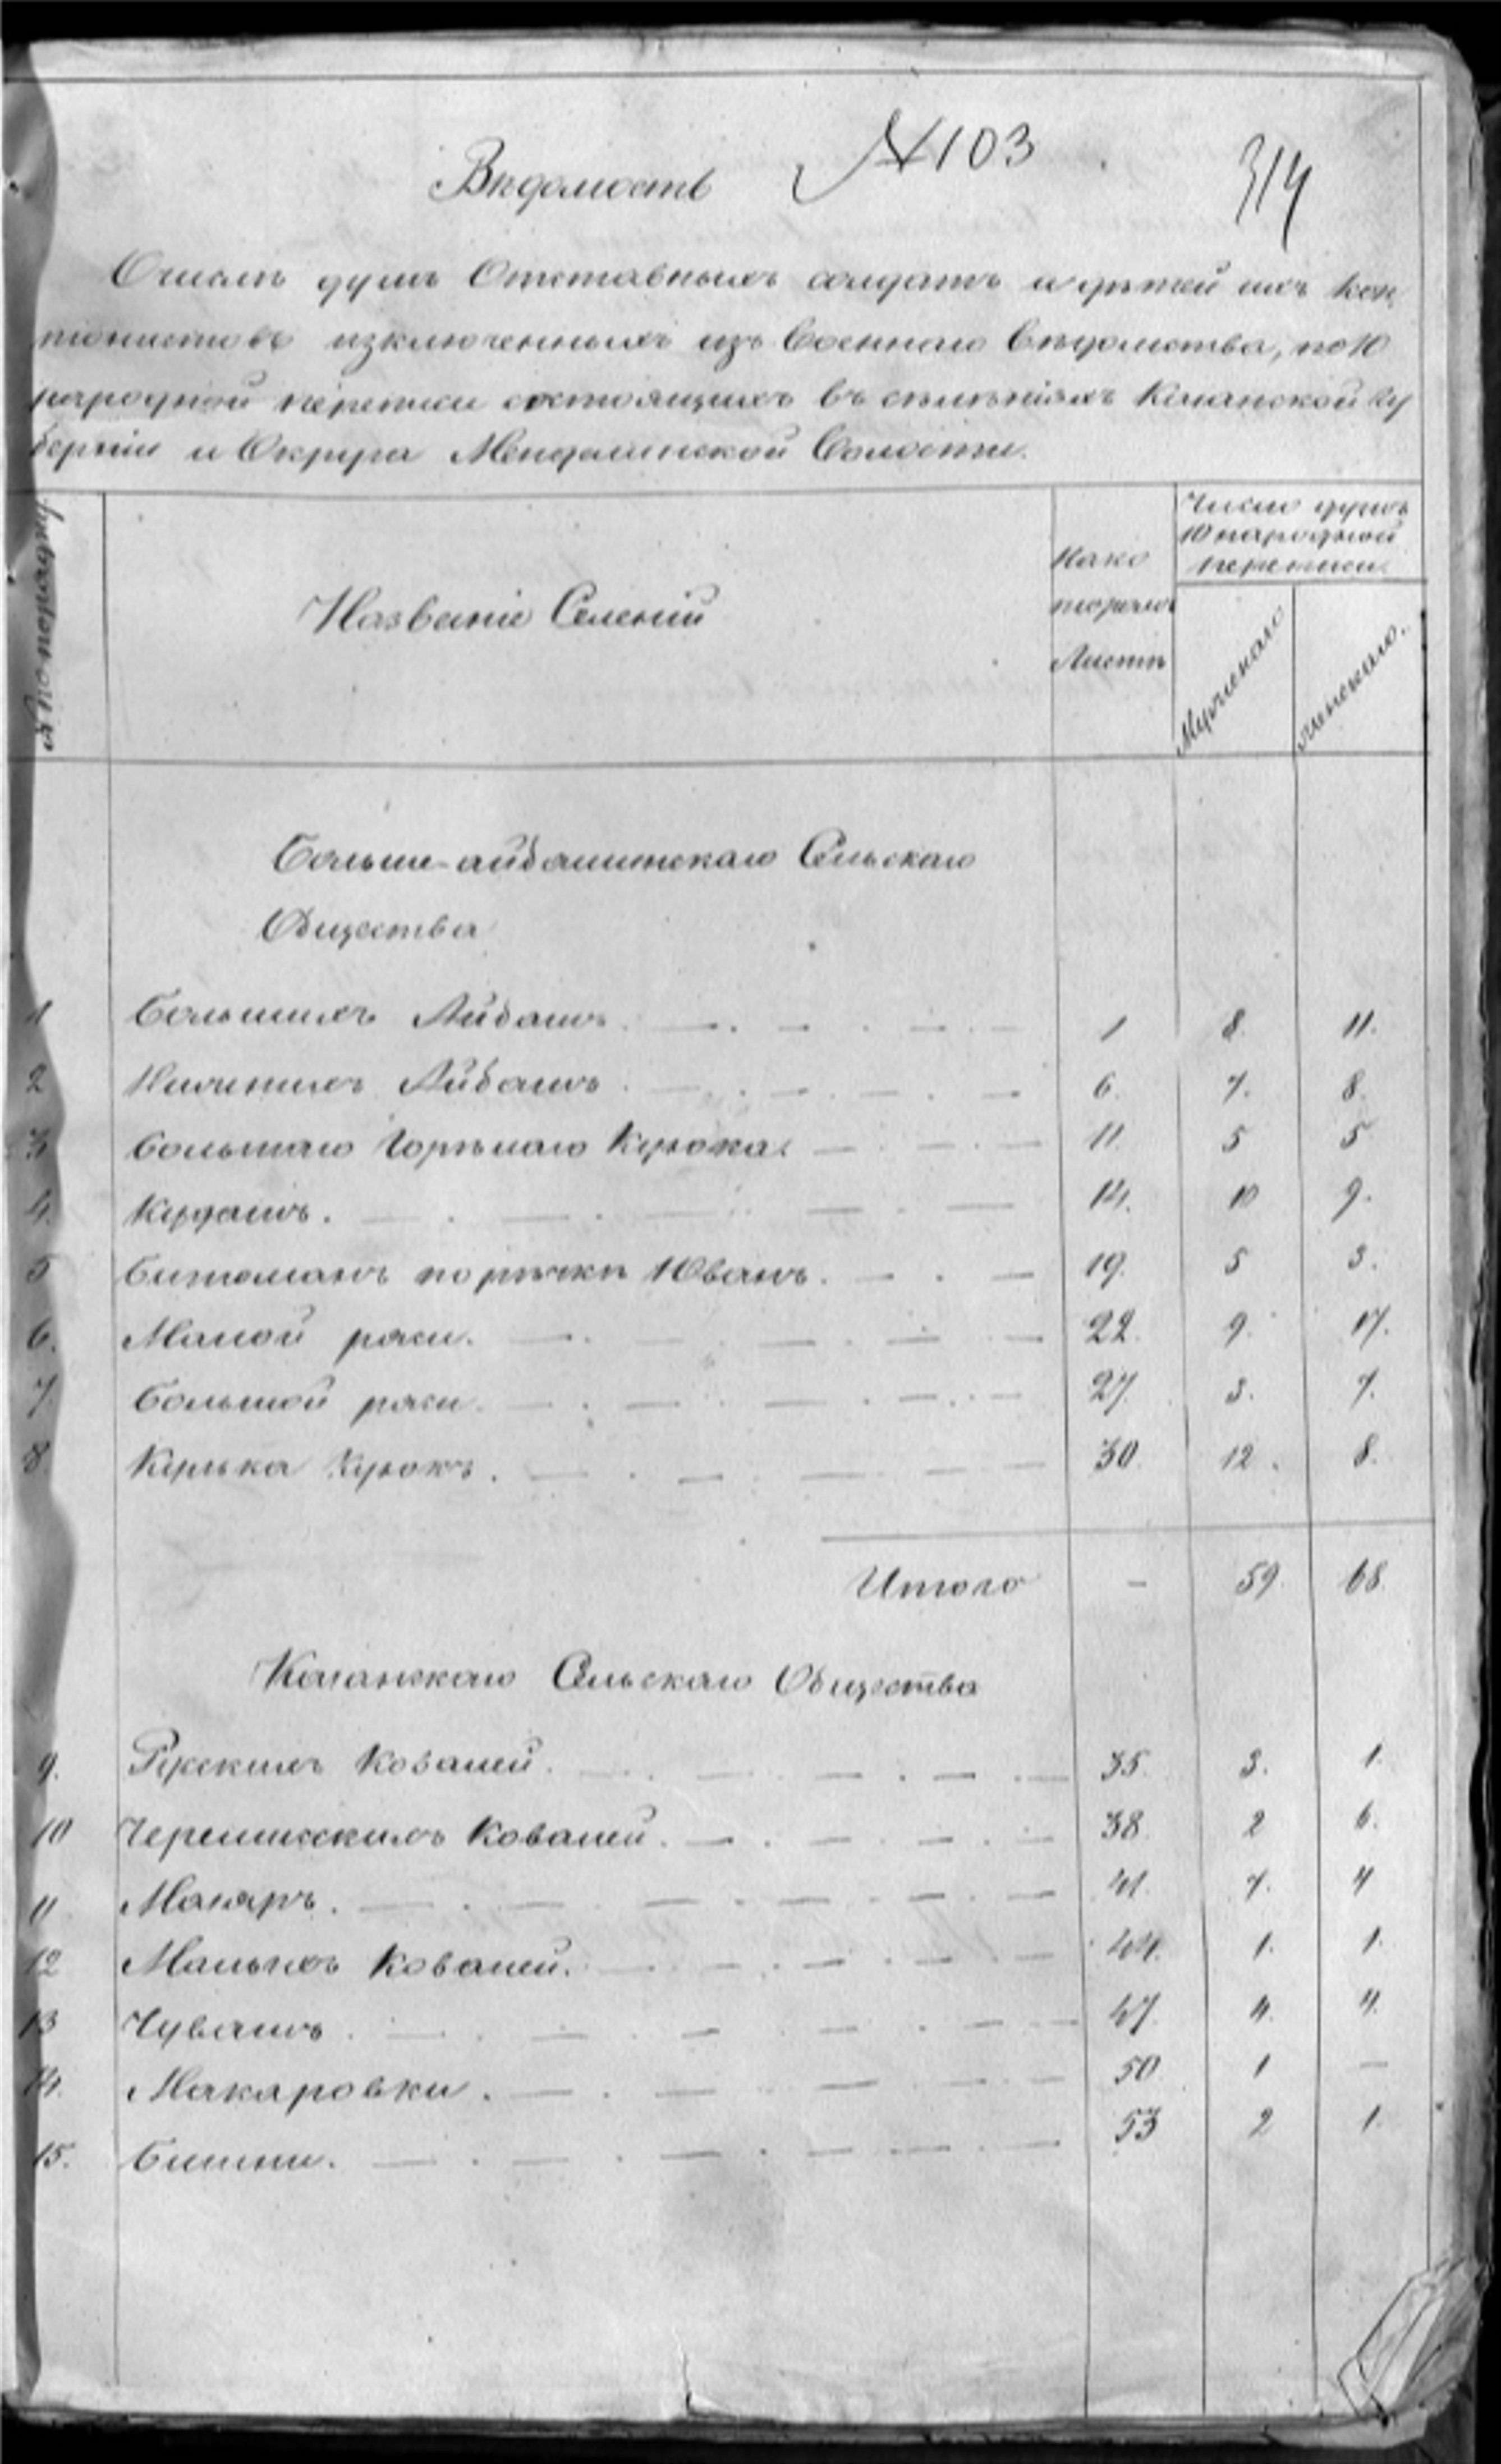 Вѣдомость №103
314
О числѣ душъ Отставныхъ солдатъ и дѣтей ихъ кан
тонистовъ изключенныхъ изъ Военнаго Вѣдомства, по 10
народной переписи состоящихъ въ селѣніяхъ Казанской Гу
берніи и Округа Мендолинской Волости.
№ по порядку
Названіе Селеній
На ко
торомъ
Листѣ
Число душъ
10 народной
переписи.
Мужскаго
женскаго.
Больше-айбашинскаго Сельскаго
Общества
1 Большихъ Айбашъ. 1 8. 11.
2 Нижнихъ Айбашъ. 6. 7. 8.
3 Большаго Горѣлаго Куюка. 11. 5 5
4. Курдашъ. 14. 10 9.
5 Битаманъ по рѣчки Юванъ. 19. 5 3.
6. Малой ряси. 22. 9. 17.
7. Большой ряси. 27. 3. 7.
8. Куюкъ. 30. 12. 8.
Итого - 59. 68.
Сельскаго Общества
9. Рускихъ Ковалей. 35. 3. 1.
10 Черемисскихъ Ковалей. 38. 2 6.
11 41. 7. 4
12 Малыхъ Ковалей. 44. 1. 1.
13 Чувашъ. 47. 4. 4.
14. Макаровки. 50. 1 —
15. Бишни. 53 2 1.